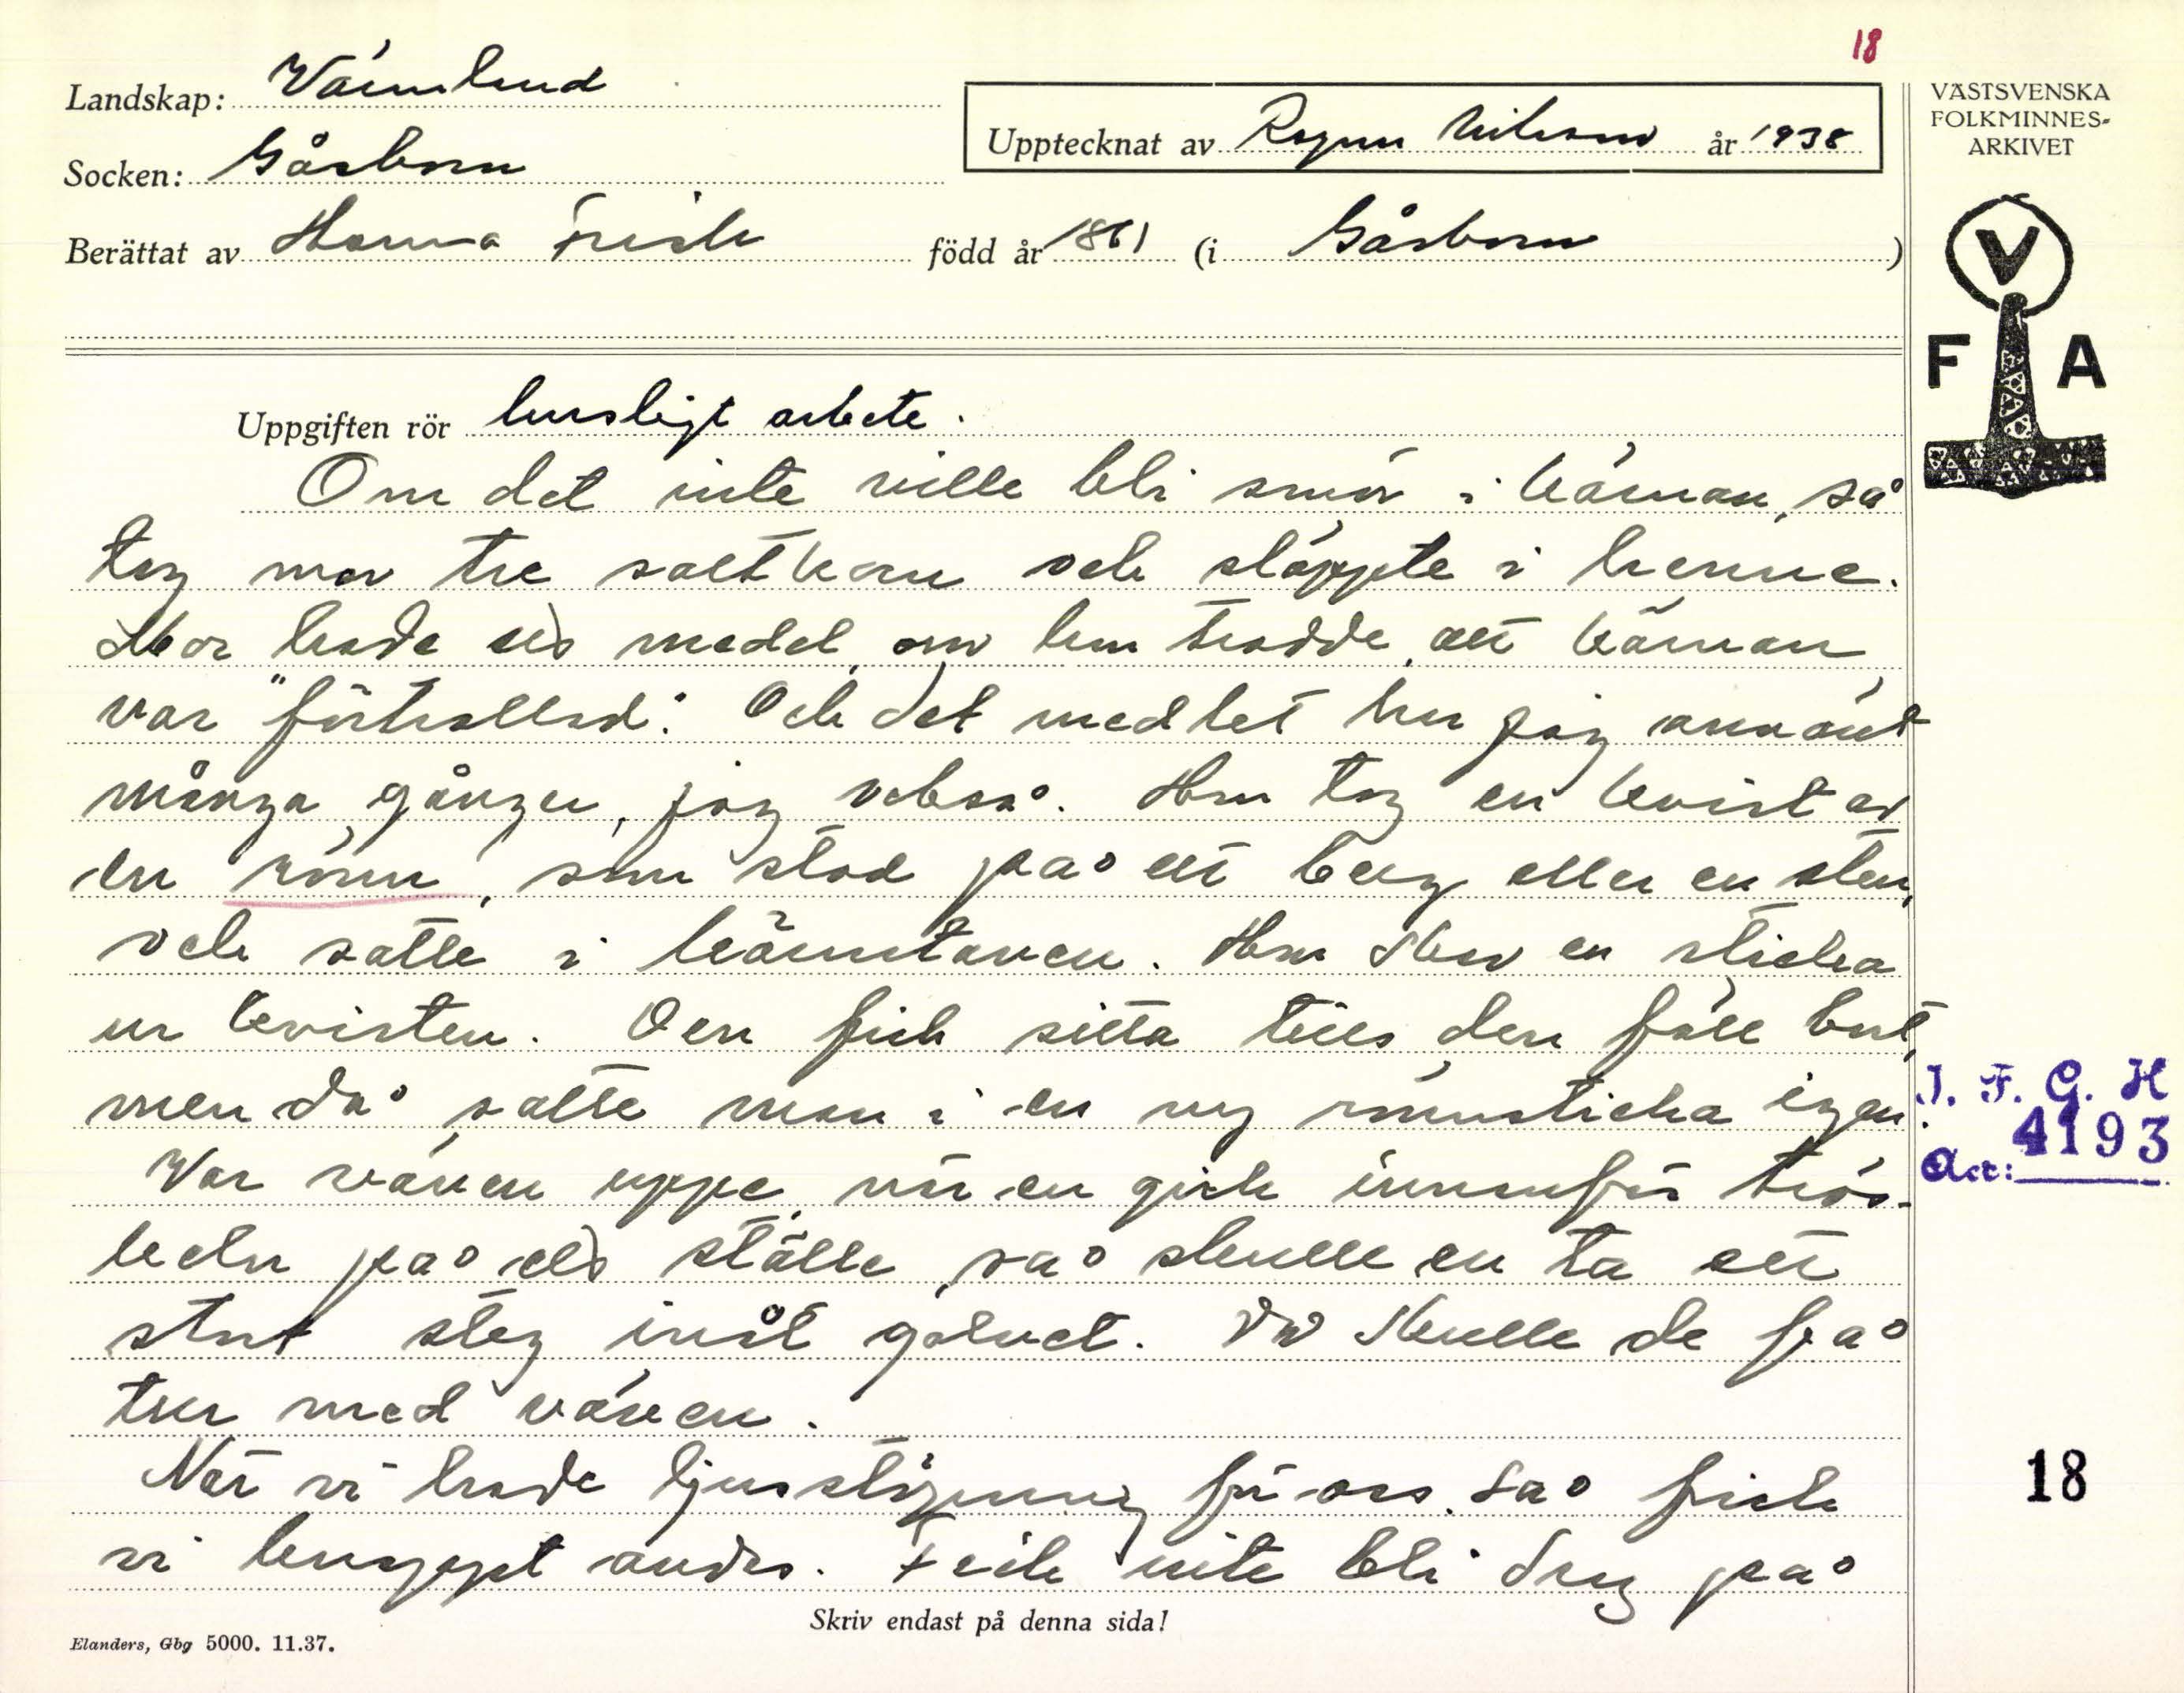 18
Landskap: Värmland
Socken: Gåsborn
Upptecknat av Ragnar Nilsson år 1938
Berättat av Hanna Frisk född år 1861 (i Gåsborn)
VÄSTSVENSKA
FOLKMINNES-
ARKIVET
V
F A
Uppgiften rör husligt arbete.
Om det inte ville bli smör i kärnan, så
tog mor tre saltkorn och släppte i henne.
Mor hade ett medel, om hon trodde, att kärnan
var "förtrollad". Och det medlet har jag använt
många gånger, jag också. Hon tog en kvist av
en rönn, som stod på ett berg eller en sten,
och satte i kärnstaven. Hon skar en sticka
ur kvisten. Den fick sitta tills den föll bort,
men då satte man i en ny rönnsticka igen.
Var väven uppe, när en gick innanför trös-
keln på ett ställe, så skulle en ta ett
stort steg inåt golvet. Då skulle de få
tur med väven.
När vi hade ljusstöpning för oss, så fick
vi knappt andas. Fick inte bli drag på
Skriv endast på denna sida!
Elanders, Gbg 5000. 11.37.
I. F. G. H
Acc: 4193
18